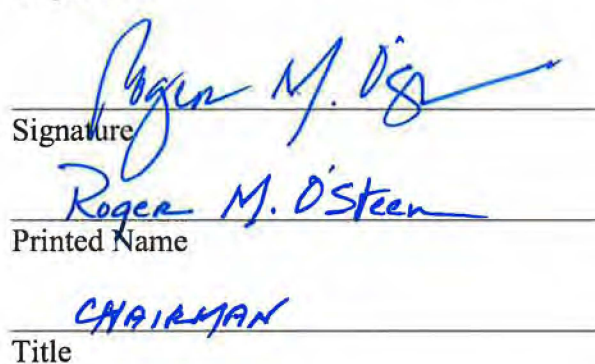 Roger M. O'S
Signature
Roger M. O'Steen
Printed Name
CHAIRMAN
Title